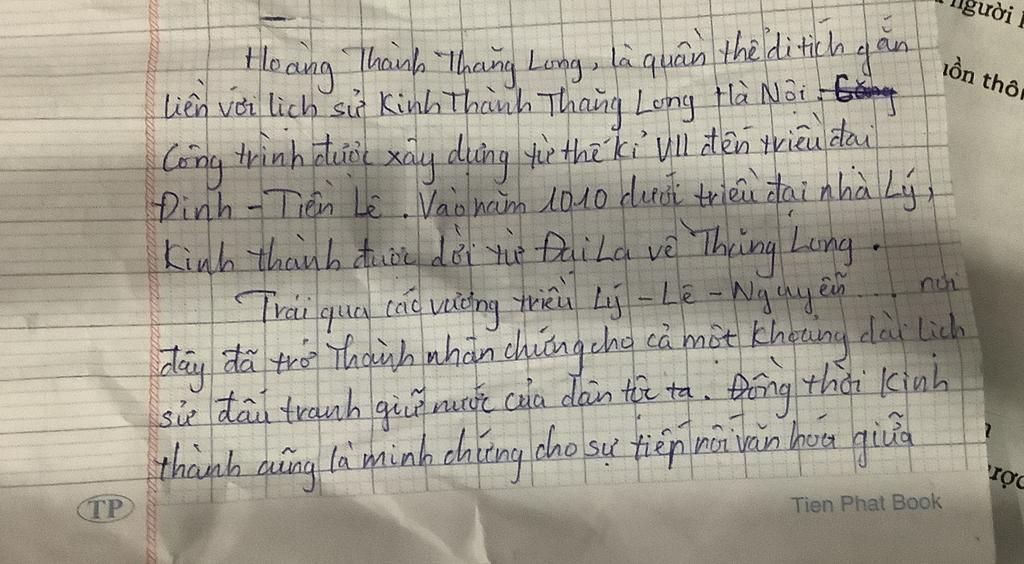 Hoàng Thành Thăng Long, là quần thể di tích gắn
liền với lịch sử Kinh Thành Thăng Long Hà Nội.
Công trình được xây dựng từ thế kỉ VII đến triều đại
Đinh - Tiền Lê. Vào năm 1010 dưới triều đại nhà Lý,
Kinh thành được dời từ Đại La về Thăng Long.
Trải qua các vương triều Lý - Lê - Nguyễn..... nơi
đây đã trở Thành nhân chứng cho cả một khoảng dài lịch
sử đấu tranh giữ nước của dân tộc ta. Đồng thời Kinh
thành cũng là minh chứng cho sự tiếp nối văn hoá giữa
TP
Tien Phat Book
người
ồn